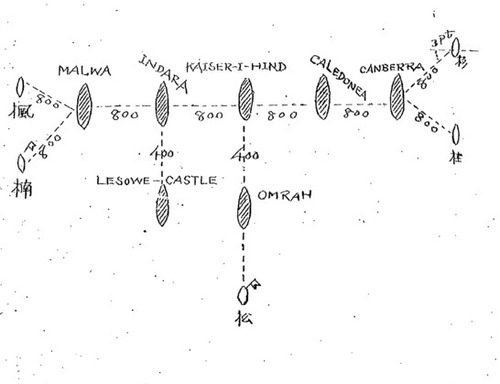 3pt
杉
INDARA
KAISER-I-HIND
CALEDONEA
CANBERRA
MALWA
800
楓
800
800
800
800
800
800
800
桂
楠
400
400
LESOWE-CASTLE
OMRAH
松